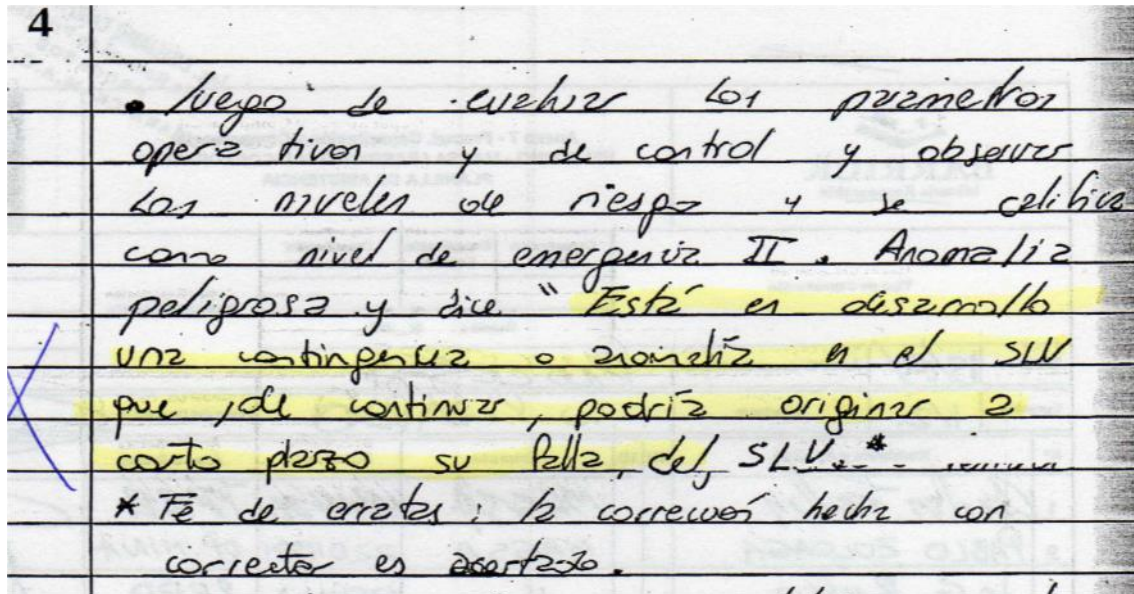 4
• luego de evaluar los parametros
operativos y de control y observar
los niveles de riesgo y se califica
como nivel de emergencia II. Anomalia
peligrosa y dice " Está en desarrollo
una contingencia o anomalía en el SLV
que, de continuar, podría originar a
corto plazo su falla, del SLV. *
* Fé de erratas: la correción hecha con
corrector es acertado.